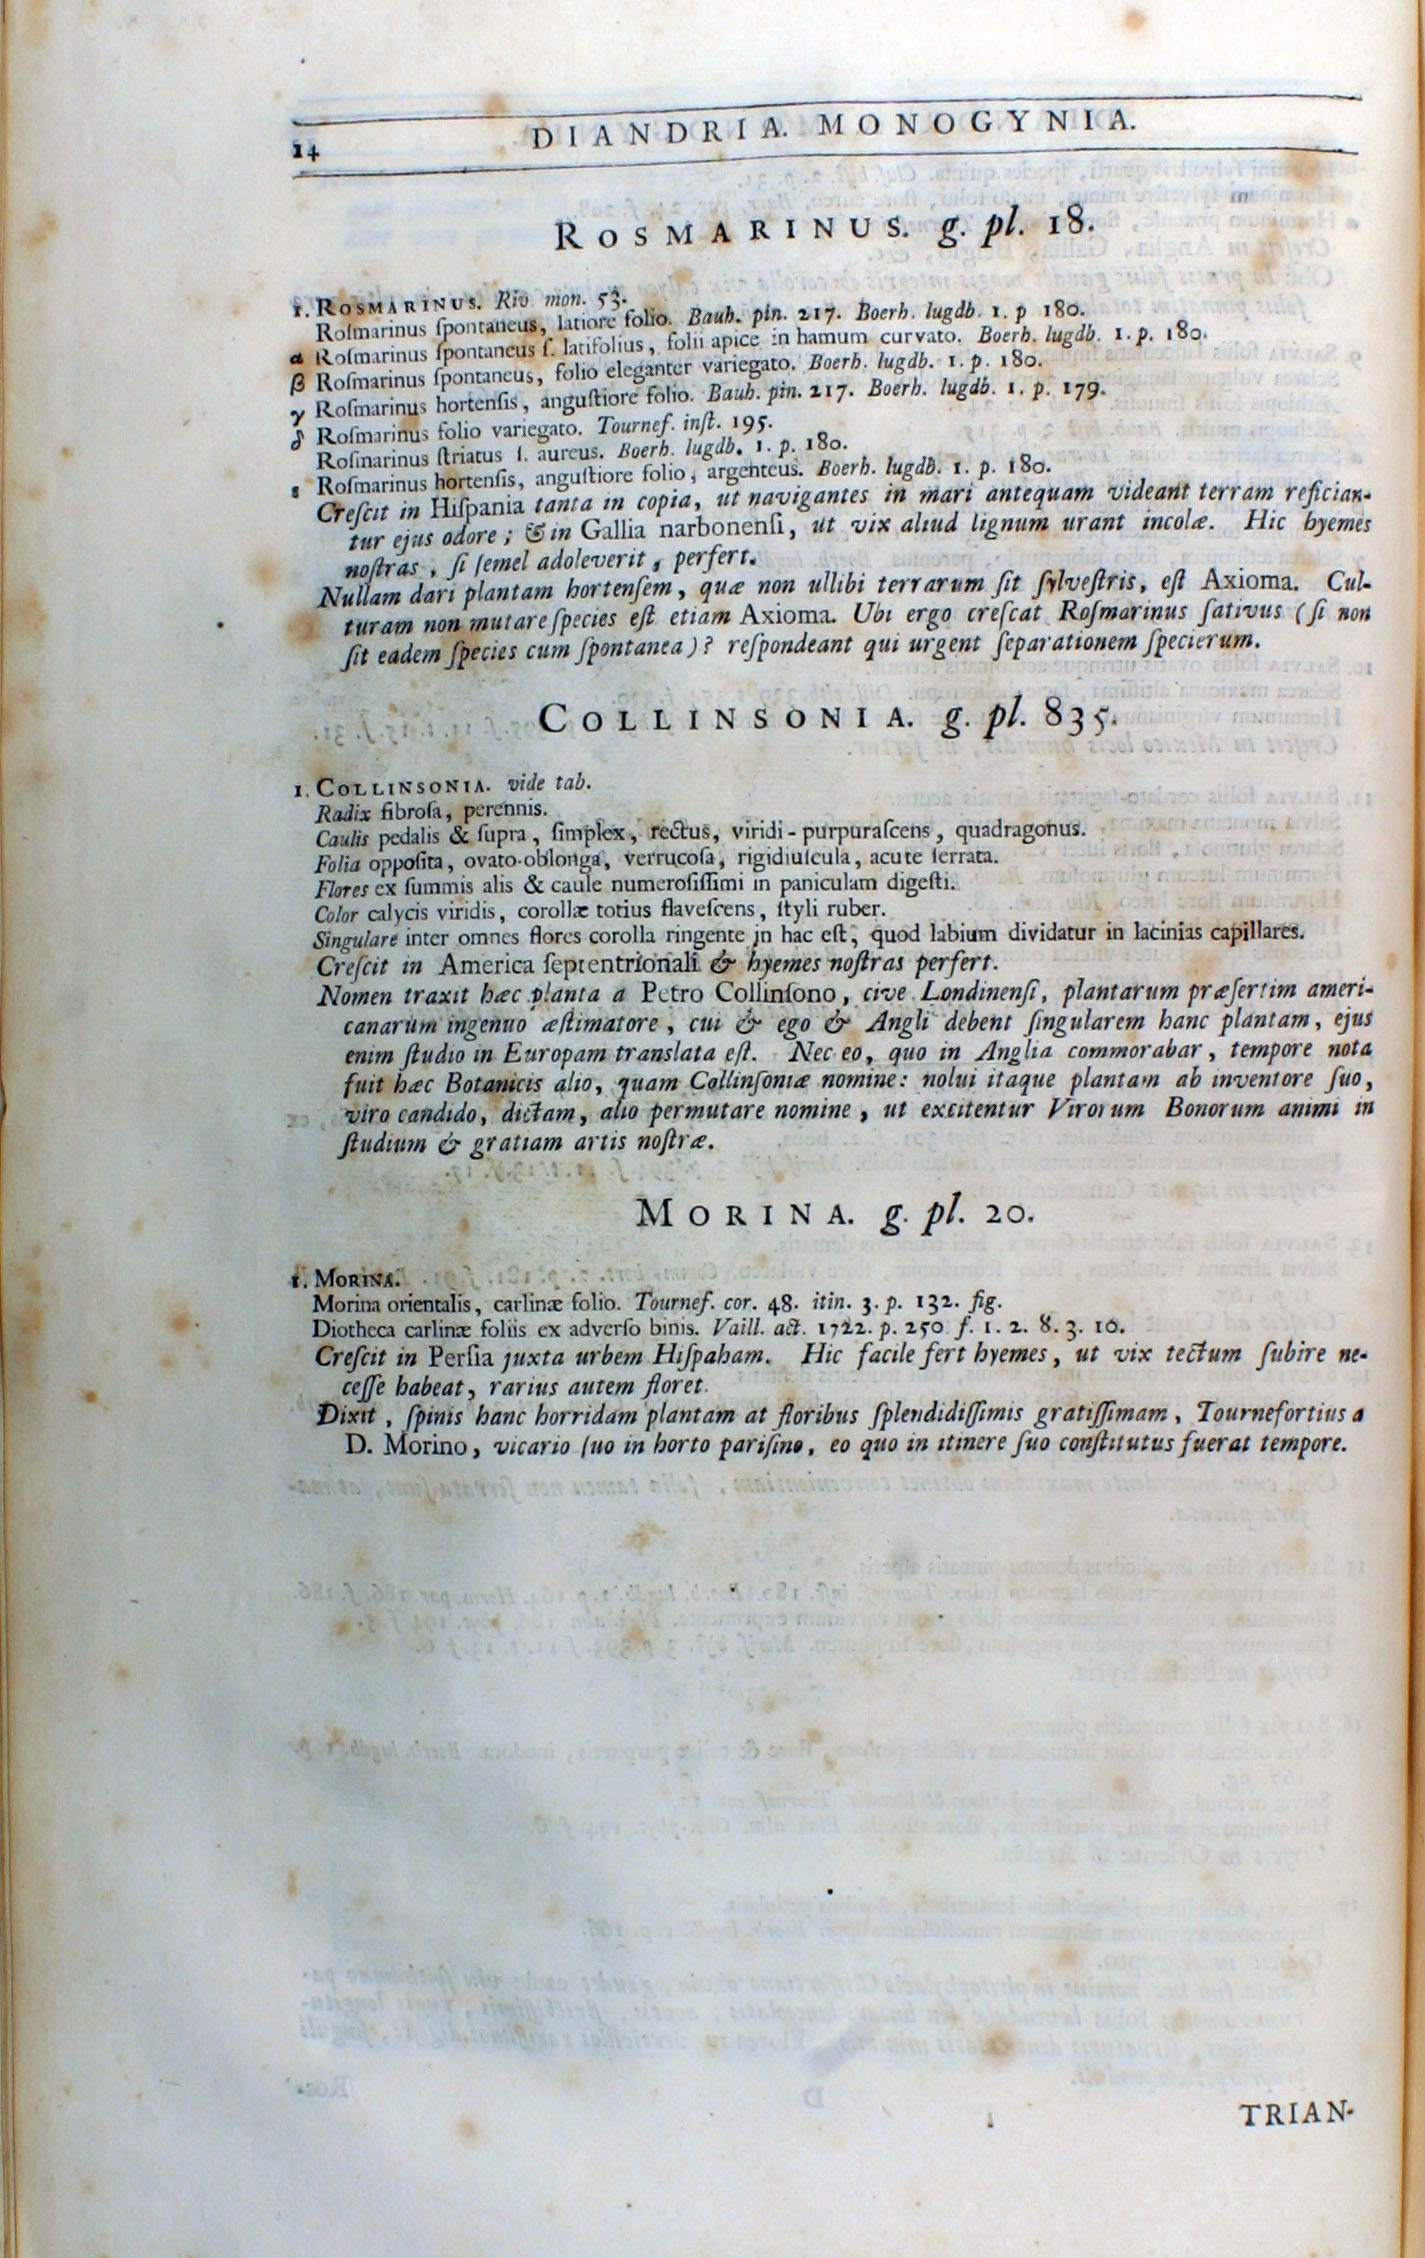 14 DIANDRIA. MONOGYNIA.
ROSMARINUS. g. pl. 18.
1. ROSMARINUS. Riv. mon. 53.
Roſmarinus ſpontaneus, latiore folio. Bauh. pin. 217. Boerh. lugdb. 1. p 180.
α Roſmarinus ſpontaneus ſ. latifolius, folii apice in hamum curvato. Boerh. lugdb. 1. p. 180.
β Roſmarinus ſpontaneus, folio eleganter variegato. Boerh. lugdb. 1. p. 180.
γ Roſmarinus hortenſis, anguſtiore folio. Bauh. pin. 217. Boerh. lugdb. 1. p. 179.
δ Roſmarinus folio variegato. Tournef. inſt. 195.
Roſmarinus ſtriatus ſ. aureus. Boerh. lugdb. 1. p. 180.
ε Roſmarinus hortenſis, anguſtiore folio, argenteus. Boerh. lugdb. 1. p. 180.
Creſcit in Hiſpania tanta in copia, ut navigantes in mari antequam videant terram refician-
tur ejus odore; & in Gallia narbonenſi, ut vix aliud lignum urant incolæ. Hic hyemes
noſtras, ſi ſemel adoleverit, perfert.
Nullam dari plantam hortenſem, quæ non ullibi terrarum ſit ſylveſtris, eſt Axioma. Cul-
turam non mutare ſpecies eſt etiam Axioma. Ubi ergo creſcat Roſmarinus ſativus (ſi non
ſit eadem ſpecies cum ſpontanea)? reſpondeant qui urgent ſeparationem ſpecierum.
COLLINSONIA. g. pl. 835.
1. COLLINSONIA. vide tab.
Radix fibroſa, perennis.
Caulis pedalis & ſupra, ſimplex, rectus, viridi-purpuraſcens, quadragonus.
Folia oppoſita, ovato-oblonga, verrucoſa, rigidiuſcula, acute ſerrata.
Flores ex ſummis alis & caule numeroſiſſimi in paniculam digeſti.
Color calycis viridis, corollæ totius flaveſcens, ſtyli ruber.
Singulare inter omnes flores corolla ringente in hac eſt, quod labium dividatur in lacinias capillares.
Creſcit in America ſeptentrionali & hyemes noſtras perfert.
Nomen traxit hæc planta a Petro Collinſono, cive Londinenſi, plantarum præſertim ameri-
canarum ingenuo æſtimatore, cui & ego & Angli debent ſingularem hanc plantam, ejus
enim ſtudio in Europam translata eſt. Nec eo, quo in Anglia commorabar, tempore nota
fuit hæc Botanicis alio, quam Collinſoniæ nomine: nolui itaque plantam ab inventore ſuo,
viro candido, dictam, alio permutare nomine, ut excitentur Virorum Bonorum animi in
ſtudium & gratiam artis noſtræ.
MORINA. g. pl. 20.
1. MORINA.
Morina orientalis, carlinæ folio. Tournef. cor. 48. itin. 3. p. 132. fig.
Diotheca carlinæ foliis ex adverſo binis. Vaill. act. 1722. p. 250 f. 1. 2. 8. 3. 10.
Creſcit in Perſia juxta urbem Hiſpaham. Hic facile fert hyemes, ut vix tectum ſubire ne-
ceſſe habeat, rarius autem floret.
Dixit, ſpinis hanc horridam plantam at floribus ſplendidiſſimis gratiſſimam, Tournefortius a
D. Morino, vicario ſuo in horto pariſino, eo quo in itinere ſuo conſtitutus fuerat tempore.
TRIAN-